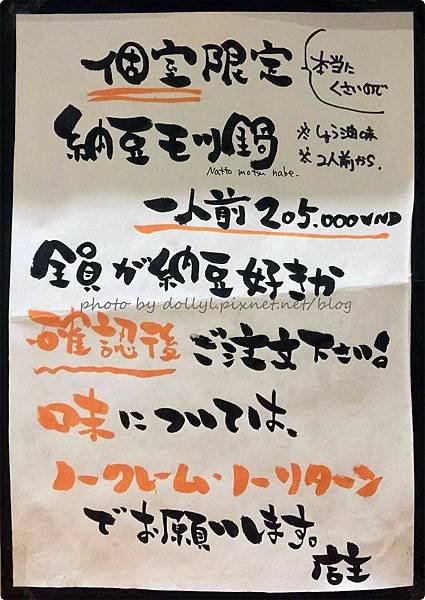 個室限定
本当に
くさいので
納豆モツ鍋
Natto motsu nabe.
※しょう油味
※2人前から.
一人前 205.000VND
全員が納豆好きか
photo by dollyl.pixnet.net/blog
確認後ご注文下さい!
味については、
ノークレーム・ノーリターン
でお願いします。
店主